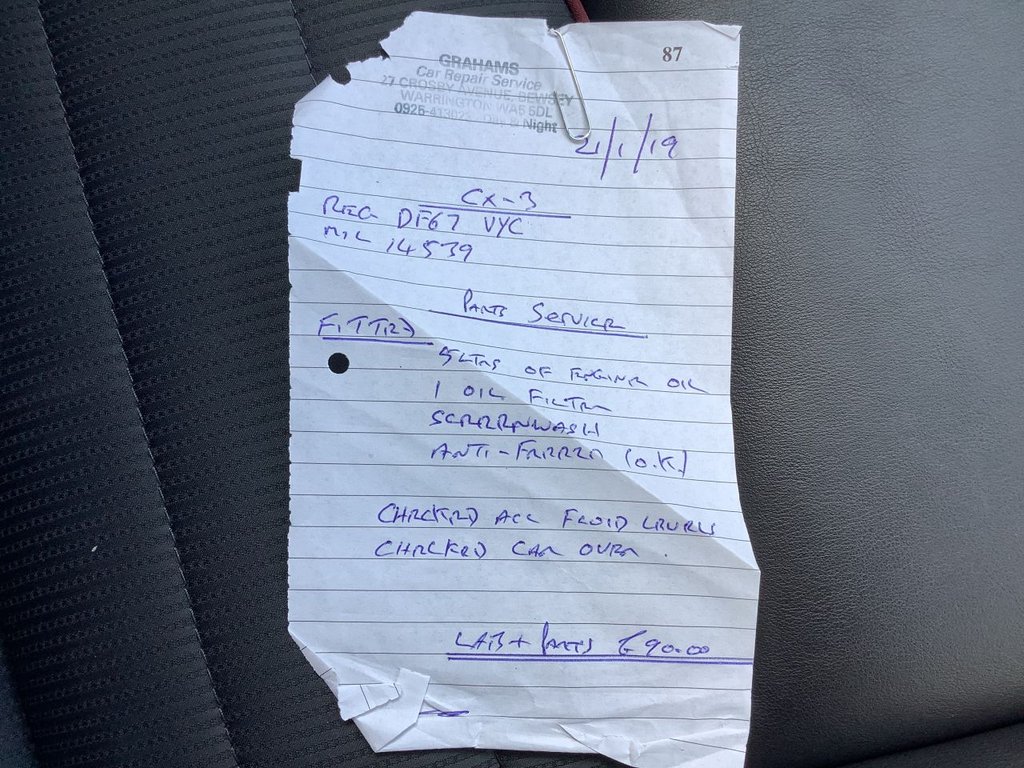 87
GRAHAMS
Car Repair Service
27 CROSBY AVENUE, BEWSEY
WARRINGTON WA5 5DL
0925- Day & Night
21/1/19
CX-3
REG DF67 VYC
MIL 14539
PARTS SERVICE
FITTED
5LTRS OF ENGINE OIL
1 OIL FILTER
SCREENWASH
ANTI-FREEZE (O.K.)
CHECKED ALL FLUID LEVELS
CHECKED CAR OVER.
LAB + PARTS £90.00